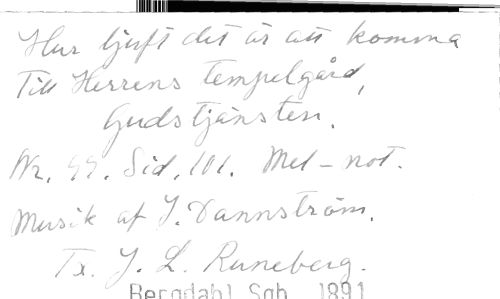 Hur ljuft det är att komma
Till Herrens tempelgård,
Gudstjänsten.
Nr. 99. Sid. 101. Mel-not.
Musik af J. Dannström.
Tx. J. L. Runeberg.
Bergdahl Sgb. 1891